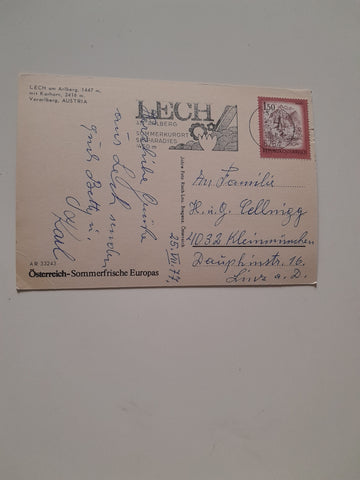 LECH am Arlberg, 1447 m,
mit Karhorn, 2416 m
Vorarlberg, AUSTRIA
LECH
ARLBERG
SOMMERKURORT
SKIPARADIES
1.50
REPUBLIK ÖSTERREICH
Herzliche Grüße
aus Lech senden
Euch Betty u.
Karl
25. VII. 77.
An Familie
H. u. G. Cellnigg
4032 Kleinmünchen
Dauphinstr. 16.
Linz a. D.
AR 33243
Österreich-Sommerfrische Europas